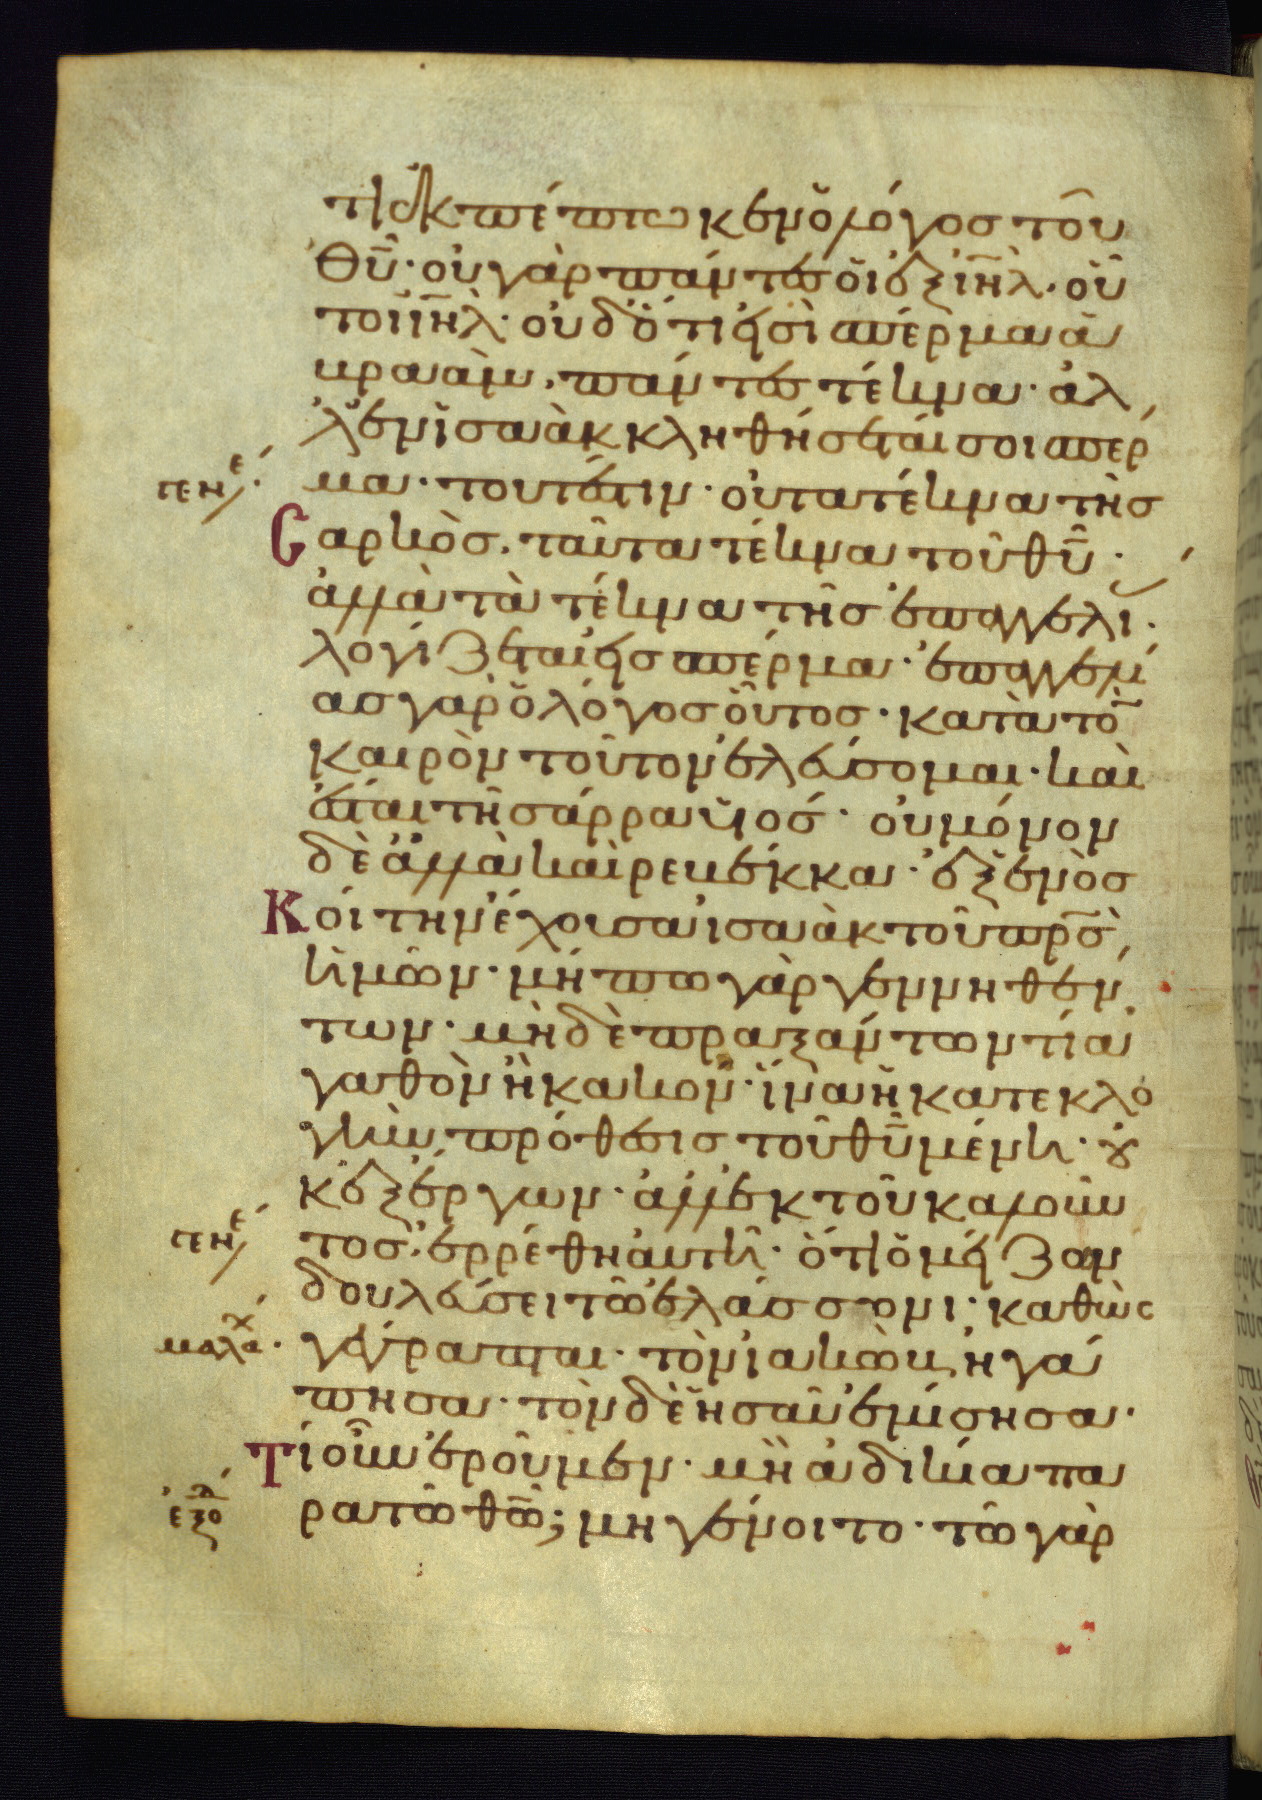 τι ἐκπέπτωκεν ὁ λόγος τοῦ
θῦ· οὐ γὰρ πάντες οἱ ἐξ ιηλ· οὗ
τοι ιηλ· οὐδ ὅτι εἰσὶ σπέρμα ἀ
βρααμ, πάντες τέκνα· ἀλ
λ ἐν ἰσαὰκ κληθήσεταί σοι σπέρ
γεν
μα· τουτέστιν· οὐ τα τέκνα τῆς
Σαρκὸς· ταῦτα τέκνα τοῦ θῦ·
ἀλλὰ τὰ τέκνα τῆς ἐπαγγελί
λογίζεται εἰς σπέρμα· ἐπαγγελί
ας γαρ ὁ λόγος οὗτος· κατὰ τὸ
καιρὸν τοῦτον ἐλεύσομαι· καὶ
ἔσται τῆ σάρρα υἱός· οὐ μόνον
δὲ ἀλλὰ καὶ ρεβέκκα· ἐξ ἑνὸς
Κοίτην ἔχουσα ἰσαὰκ τοῦ πρς
ἡμῶν· μήπω γὰρ γεννηθέν
των· μηδὲ πραξάντων τί ἀ
γαθὸν ἢ κακόν· ἵνα ἡ κατ εκλο
γὴν πρόθεσις τοῦ θῦ μένη· οὐ
κ ἐξ ἔργων· ἀλλ ἐκ τοῦ καλοῦν
γεν
τος· ἐρρέθη αὐτῆ· ὅτι ὁ μείζων
δουλεύσει τῶ ἐλάσσονι· καθὼς
μαλαχ
γέγραπται· τὸν ἰακὼβ ἠγά
πησα· τὸν δὲ ἠσαῦ ἐμίσησα·
Τί οὖν ἐροῦμεν· μὴ ἀδικία πα
ἐξοδ
ρα τῶ θῶ; μη γένοιτο· τῶ γὰρ